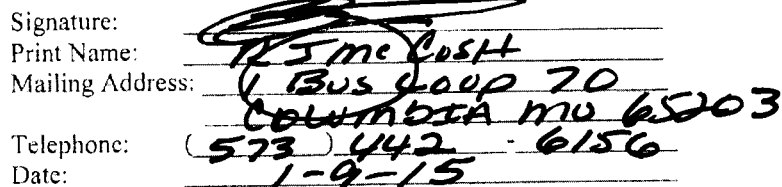 Signature:
Print Name: RJ McCosh
Mailing Address: 1 Bus Loop 70
Columbia MO 65203
Telephone: (573) 442 - 6156
Date: 1-9-15